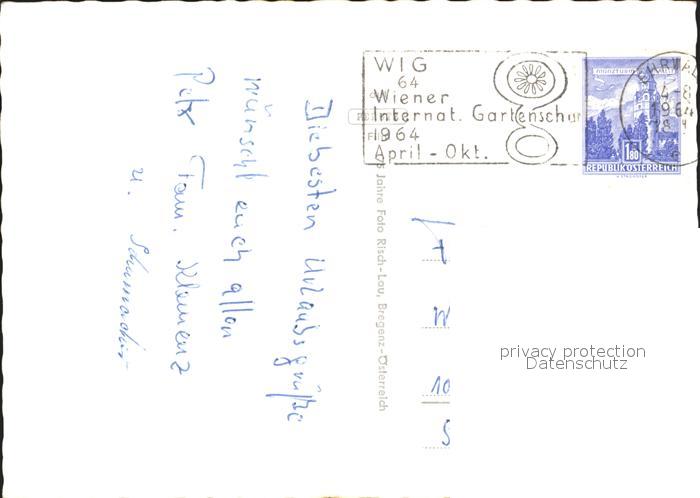 WIG
64
Wiener
Internat. Gartenschau
1964
April - Okt.
MÜNZTURM
1.80
REPUBLIK ÖSTERREICH
EHRWA
1964
Die besten Urlaubsgrüße
wünscht euch allen
Fam. Klemenz
u. Schumacher
Jahre Foto Risch-Lau, Bregenz-Österreich
W
10
S
privacy protection
Datenschutz